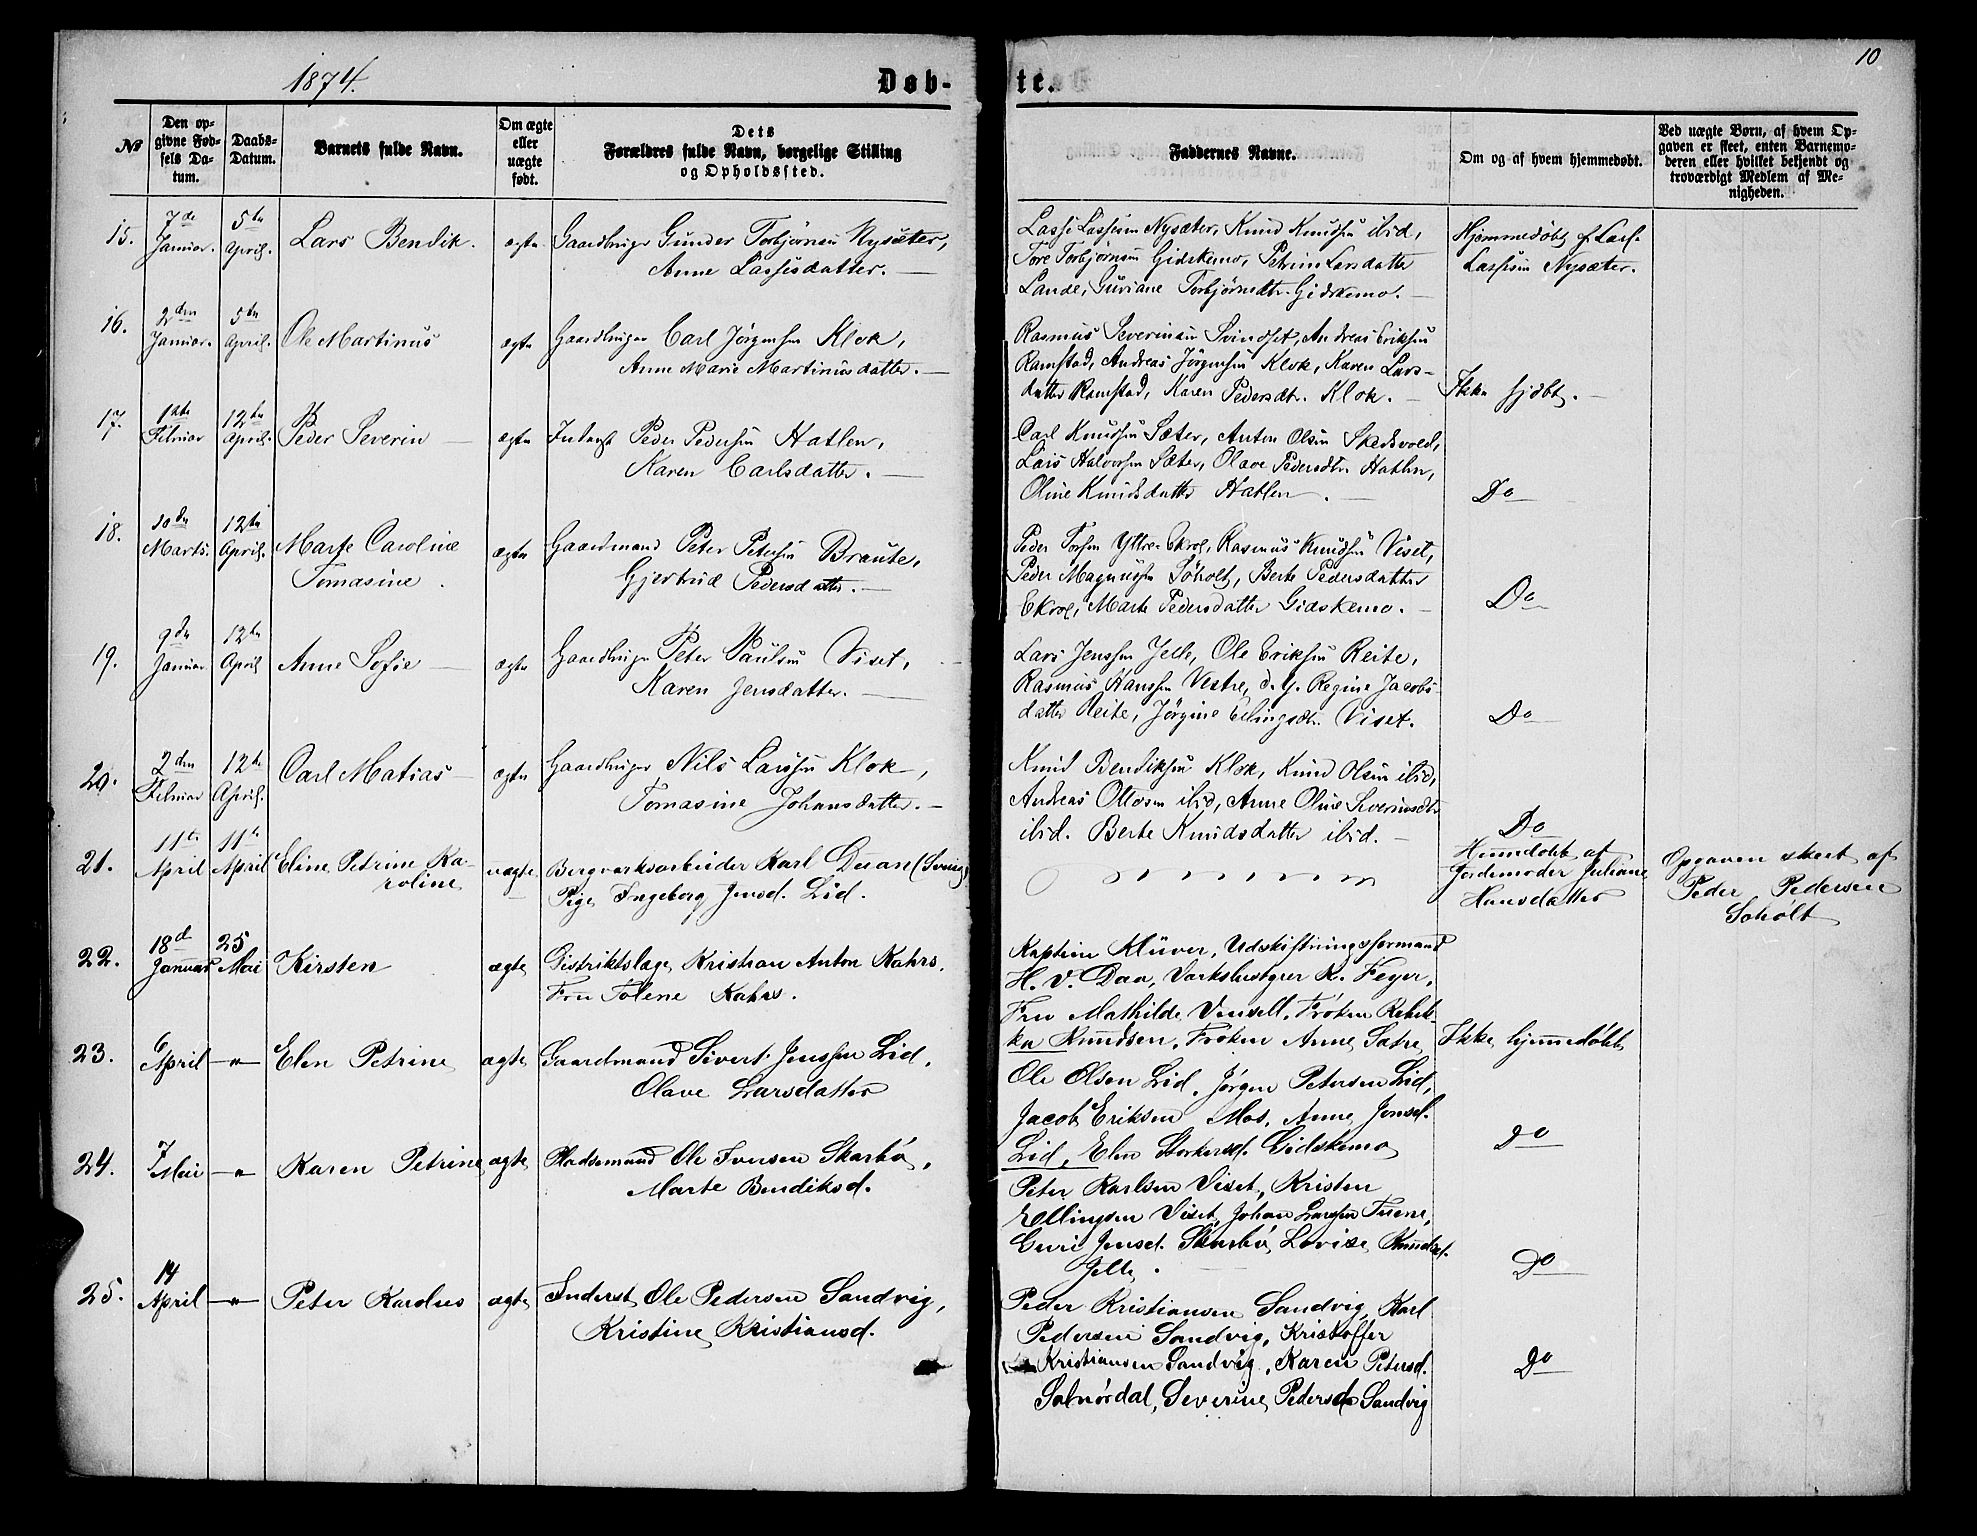 1874.
Døb-
te.
10
№
Den op-
givne Fød-
sels Da-
tum.
Daabs-
Datum.
Barnets fulde Navn.
Om ægte
eller
uægte
født.
Dets
Forældres fulde Navn, borgelige Stilling
og Opholdssted.
Faddernes Navne.
Om og af hvem hjemmedøbt.
Ved uægte Børn, af hvem Op-
gaven er skeet, enten Barnemo-
deren eller hvilket bekjendt og
troværdigt Medlem af Me-
nigheden.
15.
7de
Januar.
5te
April.
Lars Bendik.
ægte
Gaardbruger Gunder Torbjørnsen Nysæter,
Anne Lassesdatter.
Lasse Lassesen Nysæter, Knud Knudsen ibid,
Tore Torbjørnsen Gidskemo, Petrine Larsdatter
Lande, Guriane Torbjørnsdtr. Gidskemo.
Hjemmedøbt f. Lasse
Lassesen Nysæter.
16.
2den
Januar.
5te
April.
Ole Martinus
ægte
Gaardbruger Carl Jørgensen Klok,
Anne Marie Martinusdatter.
Rasmus Severinsen Svindset, Andreas Eriksen
Ramstad, Andreas Jørgensen Klok, Karen Lars-
datter Ramstad, Karen Pedersdtr. Klok.
Ikke hjdøbt.
17.
1ste
Februar
12te
April.
Peder Severin
ægte
Inderst Peder Pedersen Hatlen,
Karen Carlsdatter.
Carl Knudsen Sæter, Anton Olsen Skedsvold,
Lars Halvorsen Sæter, Olave Pedersdtr. Hatlen,
Oline Knudsdatter Hatlen.
Do
18.
10de
Marts.
12te
April.
Marte Caroline
Tomasine.
ægte
Gaardmand Peter Petersen Braute,
Gjertrud Pedersdatter.
Peder Torsen Yttre-Ekrol, Rasmus Knudsen Viset,
Peder Magnussen Søholt, Berte Pedersdatter
Ekrol, Marte Pedersdatter Gidskemo.
Do
19.
9de
Januar
12te
April
Anne Sofie
ægte
Gaardbruger Peter Paulsen Viset,
Karen Jensdatter.
Lars Jenssen Jelle, Ole Eriksen Reite,
Rasmus Hanssen Vestre, d. y. Regine Jacobs-
datter Reite, Jørgine Ellingsdtr. Viset.
Do
20.
2den
Februar
12te
April.
Carl Matias
ægte
Gaardbruger Nils Larssen Klok,
Tomasine Johansdatter.
Knud Bendiksen Klok, Knud Olsen ibid,
Andreas Ottosen ibid, Anne Oline Severinsdtr
ibid. Berte Knudsdatter ibid.
Do
21.
11te
April
11te
April
Eline Petrine Ka-
roline
uægte
Bergværksarbeider Karl Duan (Sverig)
Pige Ingeborg Jensd. Lid.
Hjemmdøbt af
Jordemoder Juliane
Hansdatter
Opgaven skeet af
Peder Pedersen
Søholt
22.
18d
Januar
25
Mai
Kirsten
ægte
Distriktslæge Kristian Anton Kahrs,
Fru Tolene Kahrs.
Kaptein Klüver, Udskiftningsformand
H. V. Daa, Værksbestyrer K. Feyer,
Fru Mathilde Vensell, Frøken Rebek-
ka Knudsen, Frøken Anne Satre
Ikke hjemmedøbt
23.
6
April
—"—
Elen Petrine
ægte
Gaardmand Sivert Jenssen Lid,
Olave Larsdatter
Ole Olsen Lid, Jørgen Petersen Lid,
Jacob Eriksen Mos, Anne Jensd.
Lid, Elen Storkersd. Gidskemo
Do
24.
7
Mai
—"—
Karen Petrine
ægte
Pladsemand Ole Iversen Skarbø,
Marte Bendiksd.
Peter Karlsen Viset, Kristen
Ellingsen Viset, Johan Larssen Tuene,
Guri Jensd. Skarbø, Lovise Knudsd.
Jelle.
Do
25.
14
April
—"—
Peter Karolus
ægte
Inderst Ole Pedersen Sandvig,
Kristine Kristiansd.
Peder Kristiansen Sandvig, Karl
Pedersen Sandvig, Kristoffer
Kristiansen Sandvig, Karen Petersd.
Solnørdal, Severine Pedersd. Sandvig
Do